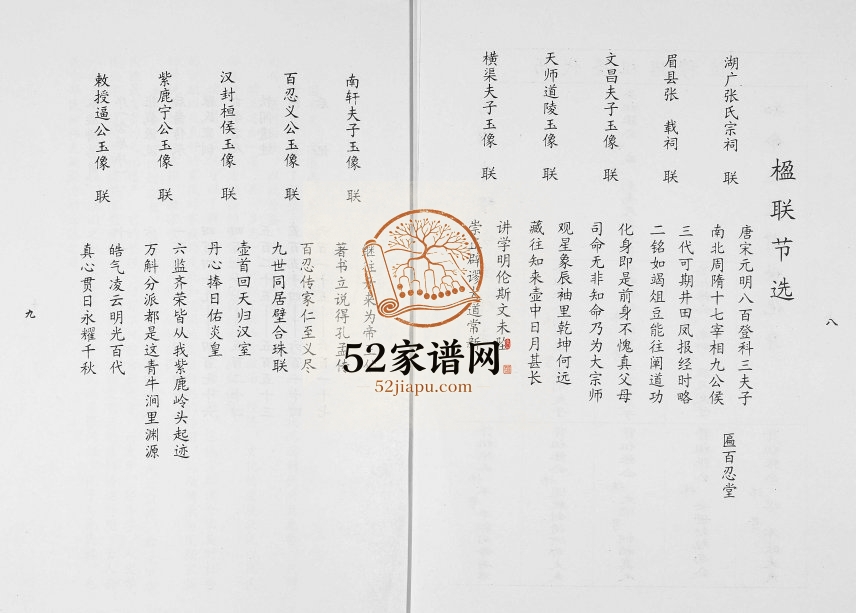 楹联节选
湖广张氏宗祠 联
唐宋元明八百登科三夫子
南北周隋十七宰相九公侯
匾百忍堂
眉县张 载祠 联
三代可期井田凤报经时略
二铭如竭俎豆能往阐道功
文昌夫子玉像 联
化身即是前身不愧真父母
司命无非知命乃为大宗师
天师道陵玉像 联
观星象辰袖里乾坤何远
藏往知来壶中日月甚长
横渠夫子玉像 联
讲学明伦斯文未坠
崇 辟谬 道常新
八
南轩夫子玉像 联
继往 来为帝
著书立说得孔孟传
百忍义公玉像 联
百忍传家仁至义尽
九世同居璧合珠联
汉封桓侯玉像 联
壶首回天归汉室
丹心捧日佑炎皇
紫鹿宁公玉像 联
六监齐荣皆从我紫鹿岭头起迹
万斛分派都是这青牛涧里渊源
敕授逼公玉像 联
皓气凌云明光百代
真心贯日永耀千秋
九
52家谱网
52jiapu.com